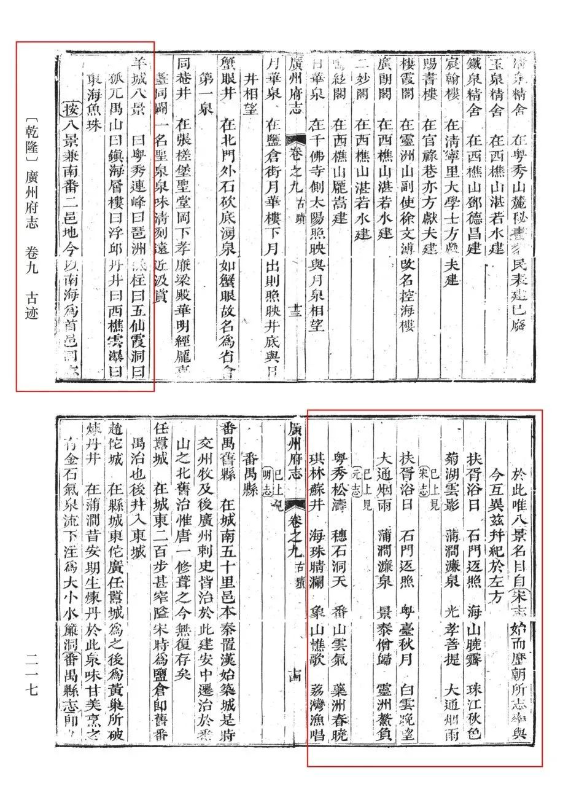 泉精舍 在粤秀山麓祕書 民表建已廢
玉泉精舍 在西樵山湛若水建
鐵泉精舍 在西樵山鄧德昌建
宸翰樓 在清寧里大學士方獻夫建
賜書樓 在官祿巷亦方獻夫建
棲霞閣 在靈洲山副使徐文溥改名控海樓
廣朗閣 在西樵山湛若水建
二妙閣 在西樵山湛若水建
雲 閣 在西樵山龐嵩建
日華泉 在千佛寺側太陽照映與月泉相望
廣州府志 卷之九 古蹟 十三
月華泉 在鹽倉街月華樓下月出則照映井底與日
井相望
蟹眼井 在北門外石砍底湧泉如蟹眼故名爲省會
第一泉
同菴井 在張槎堡聖堂岡下孝廉梁殿華明經龐
同闢一名聖泉泉味清冽遠近汲賞
羊城八景 曰粤秀連峰曰琶洲砥柱曰五仙霞洞曰
孤兀禺山曰鎮海層樓曰浮邱丹井曰西樵雲瀑曰
東海魚珠
按八景兼南番二邑地今以南海爲首邑
〔乾隆〕廣州府志 卷九 古迹
於此唯八景名目自宋志始而歷朝所志率與
今互異茲幷紀於左方
扶胥浴日 石門返照 海山曉霽 珠江秋色
菊湖雲影 蒲澗濂泉 光孝菩提 大通烟雨
已上見宋志
扶胥浴日 石門返照 粤臺秋月 白雲晚望
大通烟雨 蒲澗濂泉 景泰僧歸 靈洲鰲負
已上見元志
粤秀松濤 穗石洞天 番山雲氣 藥洲春曉
琪林蘇井 海珠晴瀾 象山樵歌 荔灣漁唱
已上見明志
廣州府志 卷之九 古蹟 十四
番禺縣
番禺舊縣 在城南五十里邑本秦置漢始築城是時
交州牧及後廣州刺史皆治於此建安中遷治於番
山之北舊治惟唐一修葺之今無復存矣
任囂城 在城東二百步甚窄隘宋時爲鹽倉即舊番
禺治也後并入東城
趙佗城 在縣城東佗廣任囂城爲之後爲黃巢所破
煉丹井 在蒲澗昔安期生煉丹於此泉味甘美烹之
有金石氣泉流下注爲大小水簾洞番禺縣志即
二一七